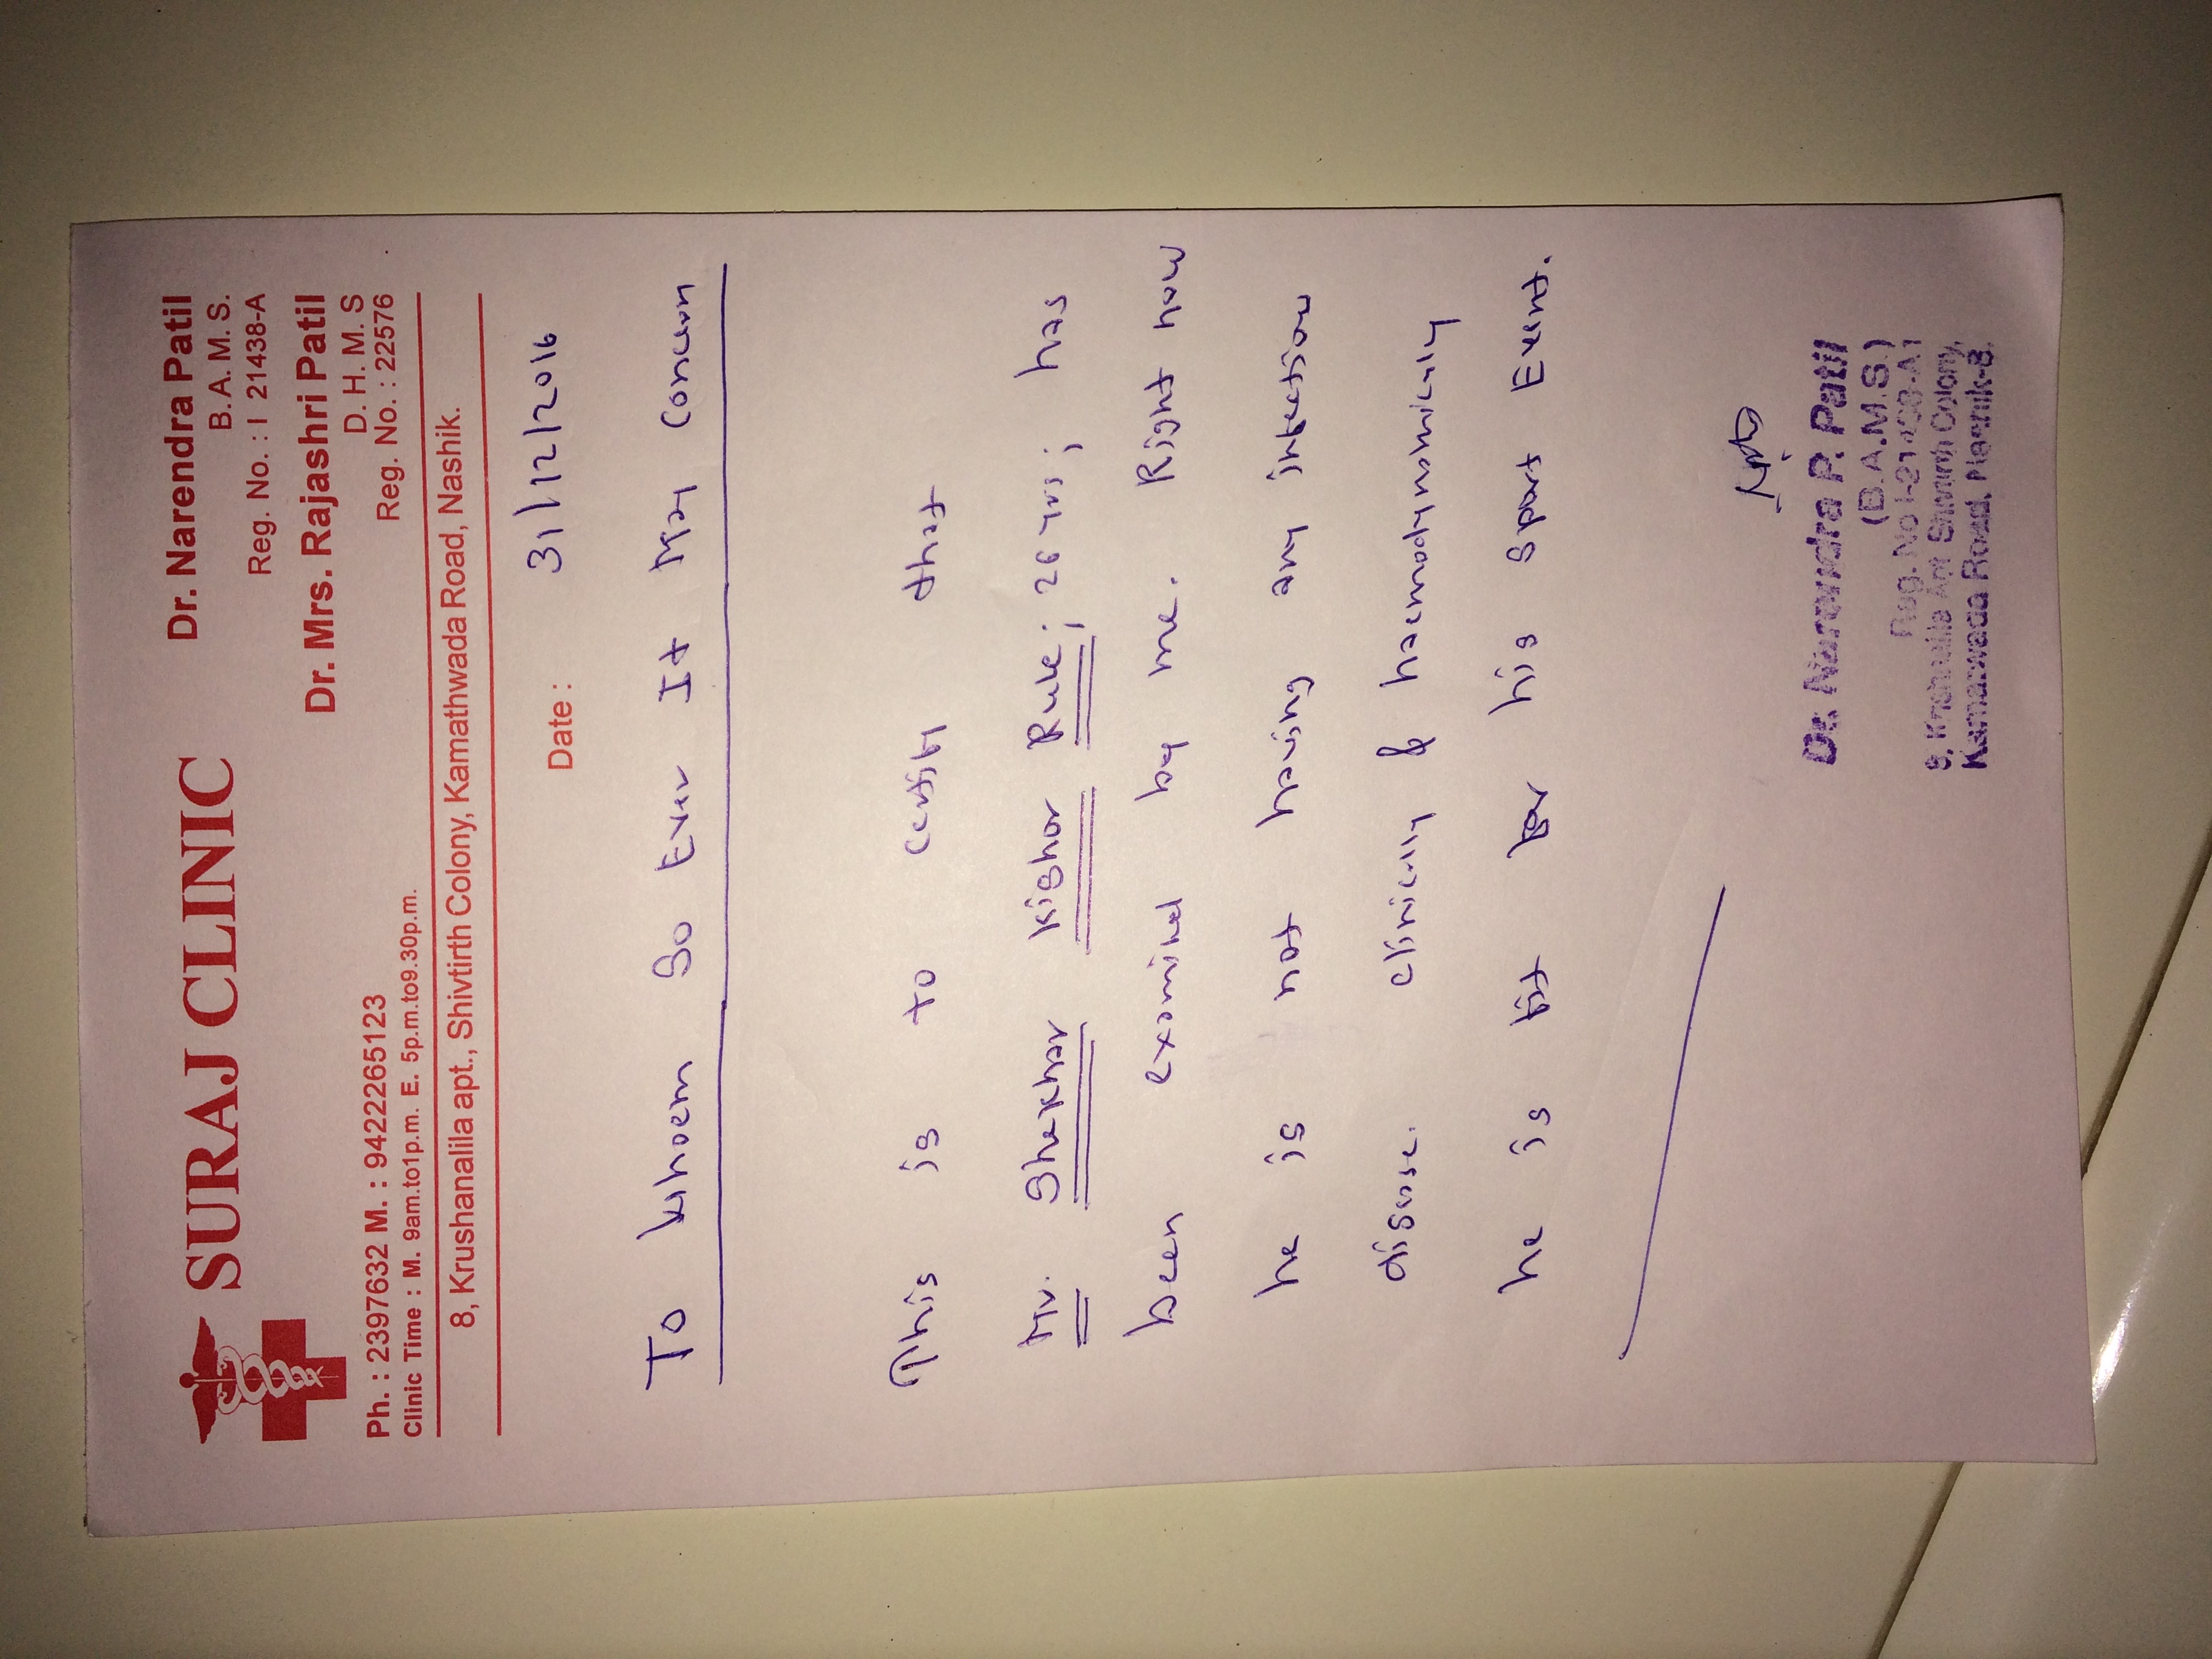 SURAJ CLINIC
Dr. Narendra Patil
B. A. M. S.
Reg. No. : I 21438-A
Dr. Mrs. Rajashri Patil
D. H. M. S
Reg. No. : 22576
Ph. : 2397632 M. : 9422265123
Clinic Time : M. 9am.to1p.m. E. 5p.m.to9.30p.m.
8, Krushanalila apt., Shivtirth Colony, Kamathwada Road, Nashik.
Date : 31/12/2016
To Whoem So Ever It May Concern
This is to certify that
Mr. Shekhar Kishor Rule; 26 yrs; has
been examined by me. Right now
he is not having any infectious
disease. clinically & haemodynamically
he is fit for his sport Event.
Dr. Narendra P. Patil
(B.A.M.S.)
Reg. No I-21438-A
8, Krishnalila Apt Shivtirth Colony,
Kamatwada Road, Nashik-8.